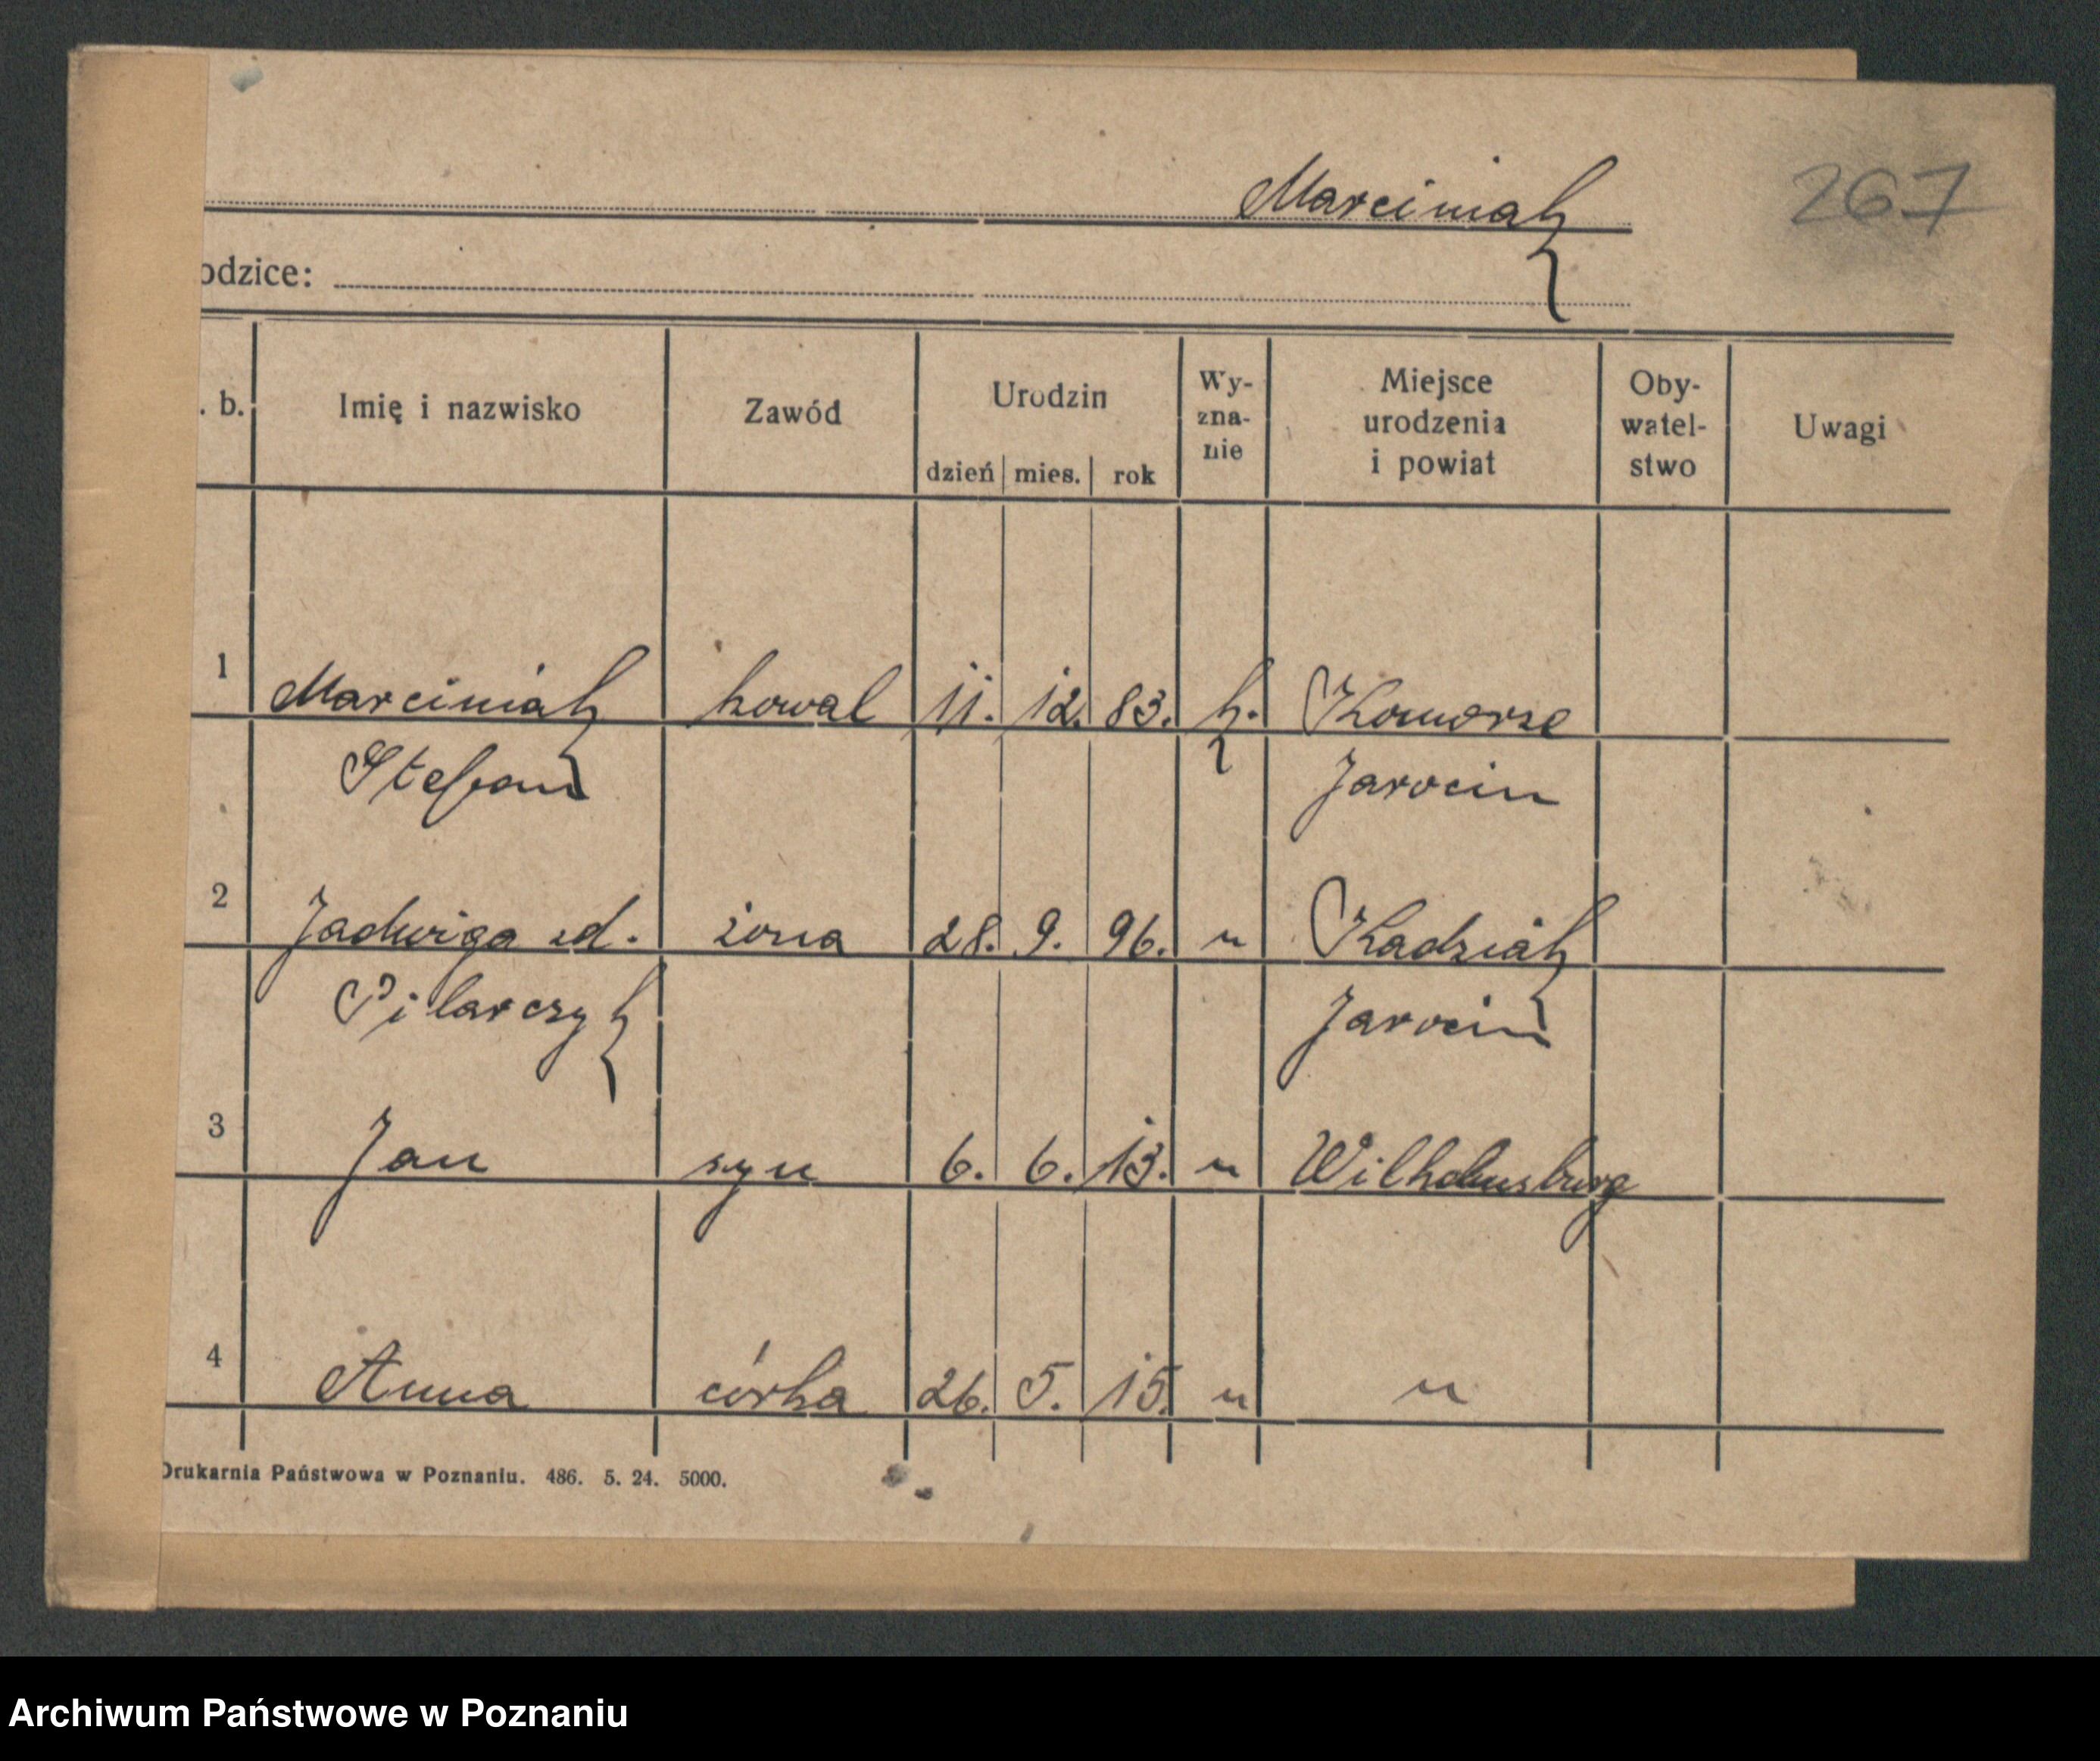 Marciniak
267
odzice:
. b. Imię i nazwisko Zawód Urodzin Wy- Miejsce Oby- Uwagi
zna- urodzenia watel-
dzień mies. rok nie i powiat stwo
1 Marciniak kowal 11. 12. 83. k. Komorze
Stefan Jarocin
2 Jadwiga zd. żona 28. 9. 96. " Kadziak
Pilarczyk Jarocin
3 Jan syn 6. 6. 13. " Wilhelmsburg
4 Anna córka 26. 5. 15. " "
Drukarnia Państwowa w Poznaniu. 486. 5. 24. 5000.
Archiwum Państwowe w Poznaniu